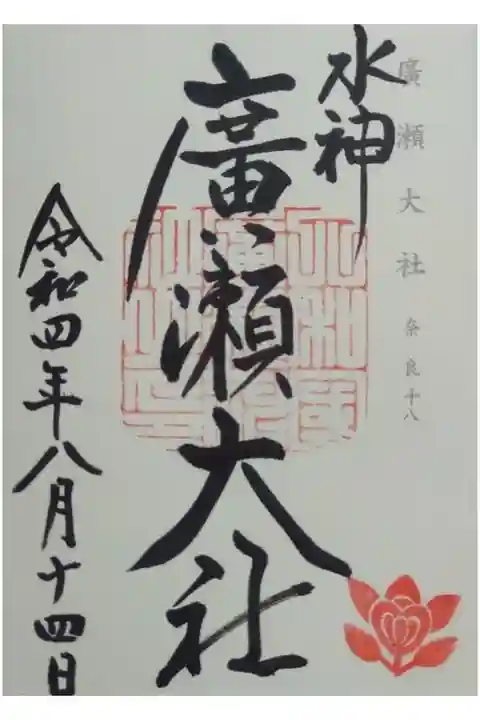 廣瀬大社 奈良十八
水神
廣瀬大社
令和四年八月十四日